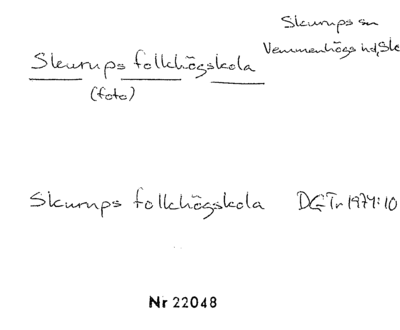 Skurups sn
Vemmenhögs hd, Sk
Skurups folkhögskola
(foto)
Skurups folkhögskola DGTr 1974:10
Nr 22048